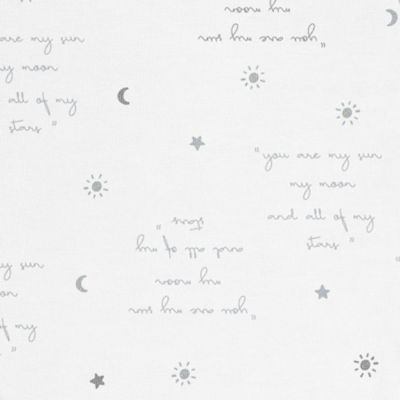 my moon
you are my sun
are my sun
my moon
all of my
stars "
"you are my sun
my moon
and all of my
stars "
stars "
and all of my
my moon
"you are my sun
my sun
of my
"